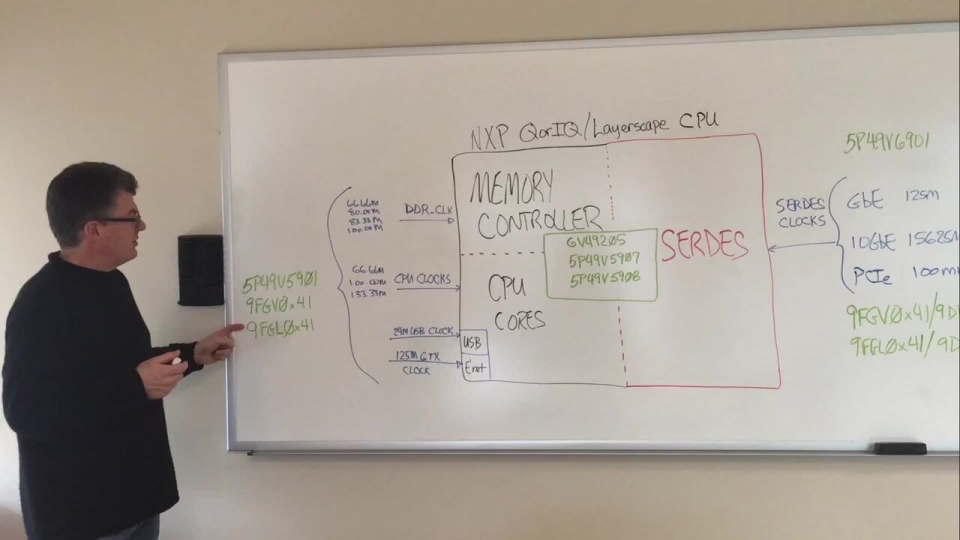 NXP QorIQ/Layerscape CPU
5P49V5901
9FGV0x41
9FGL0x41
66.66M
80.00M
83.33M
100.00M
DDR_CLK
66.66M
100.00M
133.33M
CPU CLOCKS
24M USB CLOCK
125M GTX
CLOCK
MEMORY
CONTROLLER
CPU
CORES
USB
E'net
6V49205
5P49V5907
5P49V5908
SERDES
SERDES
CLOCKS
5P49V6901
GbE 125M
10GbE 156.25M
PCIe 100M
9FGV0x41/9D
9FGL0x41/9D